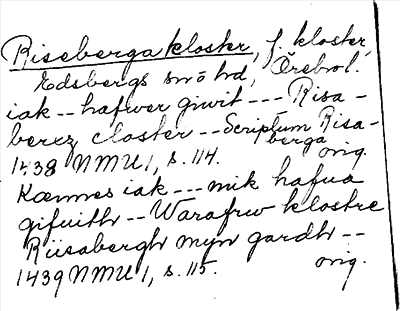 Riseberga kloster, f. kloster,
Edsbergs sn o hd, Örebro l.
iak -- hafwer giwit --- Risa-
berez closter -- Scriptum Risa-
berga
1438 NMU 1, s. 114. orig.
Kænnes iak --- mik hafua
gifuith -- Warafrw klostre
Riisabergh myn gardh --
1439 NMU 1, s. 115. orig.